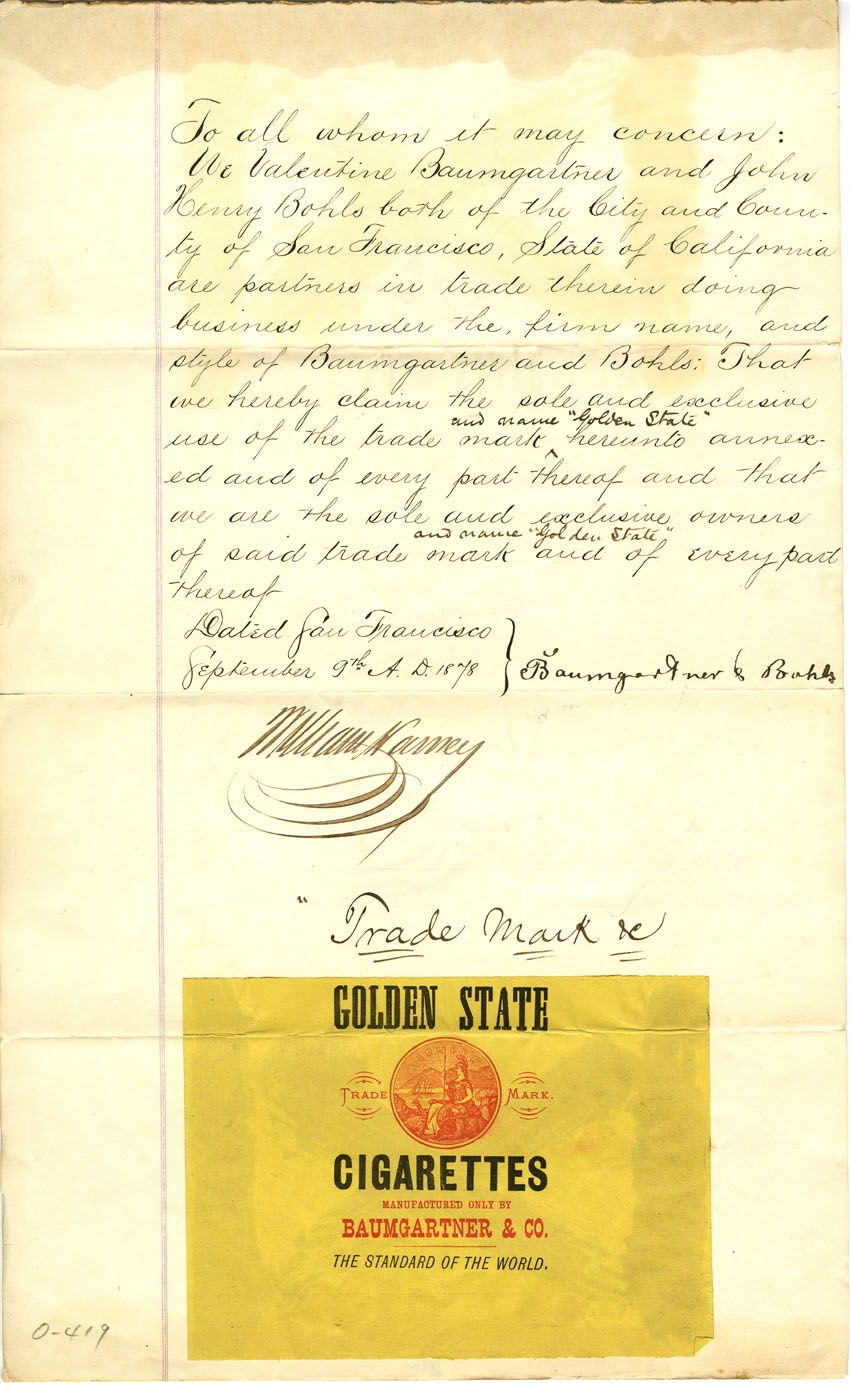 To all whom it may concern:
We Valentine Baumgartner and John
Henry Bohls both of the City and Coun-
ty of San Francisco, State of California
are partners in trade therein doing
business under the, firm name, and
style of Baumgartner and Bohls: That
we hereby claim the sole and exclusive
and name "Golden State"
use of the trade mark ^ hereunto annex-
ed and of every part thereof and that
we are the sole and exclusive owners
and name "Golden State"
of said trade mark and of every part
thereof
Dated San Francisco
September 9th A.D. 1878 } Baumgartner & Bohls
William Harney
" Trade Mark &c
GOLDEN STATE
TRADE MARK.
CIGARETTES
MANUFACTURED ONLY BY
BAUMGARTNER & CO.
THE STANDARD OF THE WORLD.
O-419